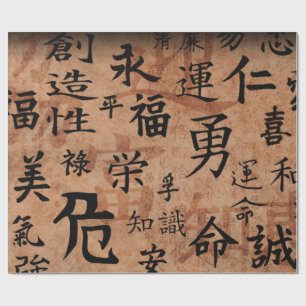 創造性
永
清
廉
運
易
仁
忠
福
平
福
勇
喜
美
祿
栄
孚
運命
和
氣
危
知識
安
命
誠
強